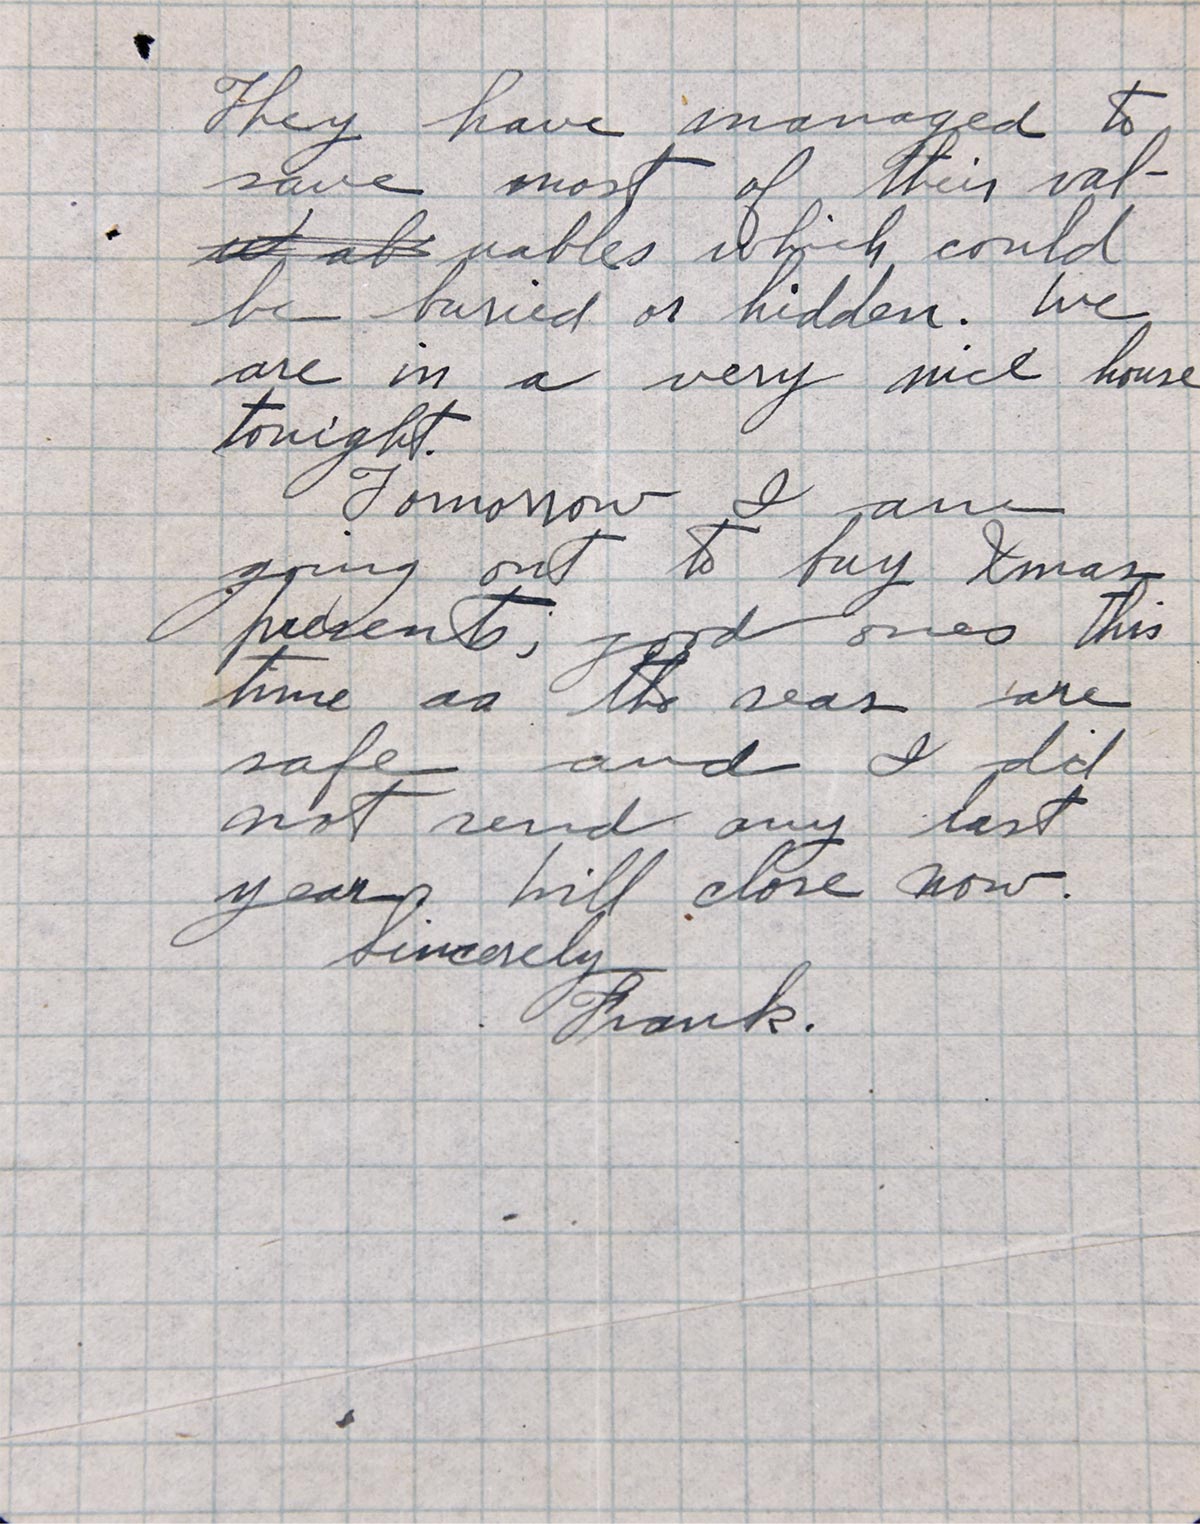 They have managed to
save most of their val-
uables which could
be buried or hidden. We
are in a very nice house
tonight.
Tomorrow I am
going out to buy Xmas
presents, good ones this
time as the seas are
safe and I did
not send any last
year. Will close now.
Sincerely
Frank.